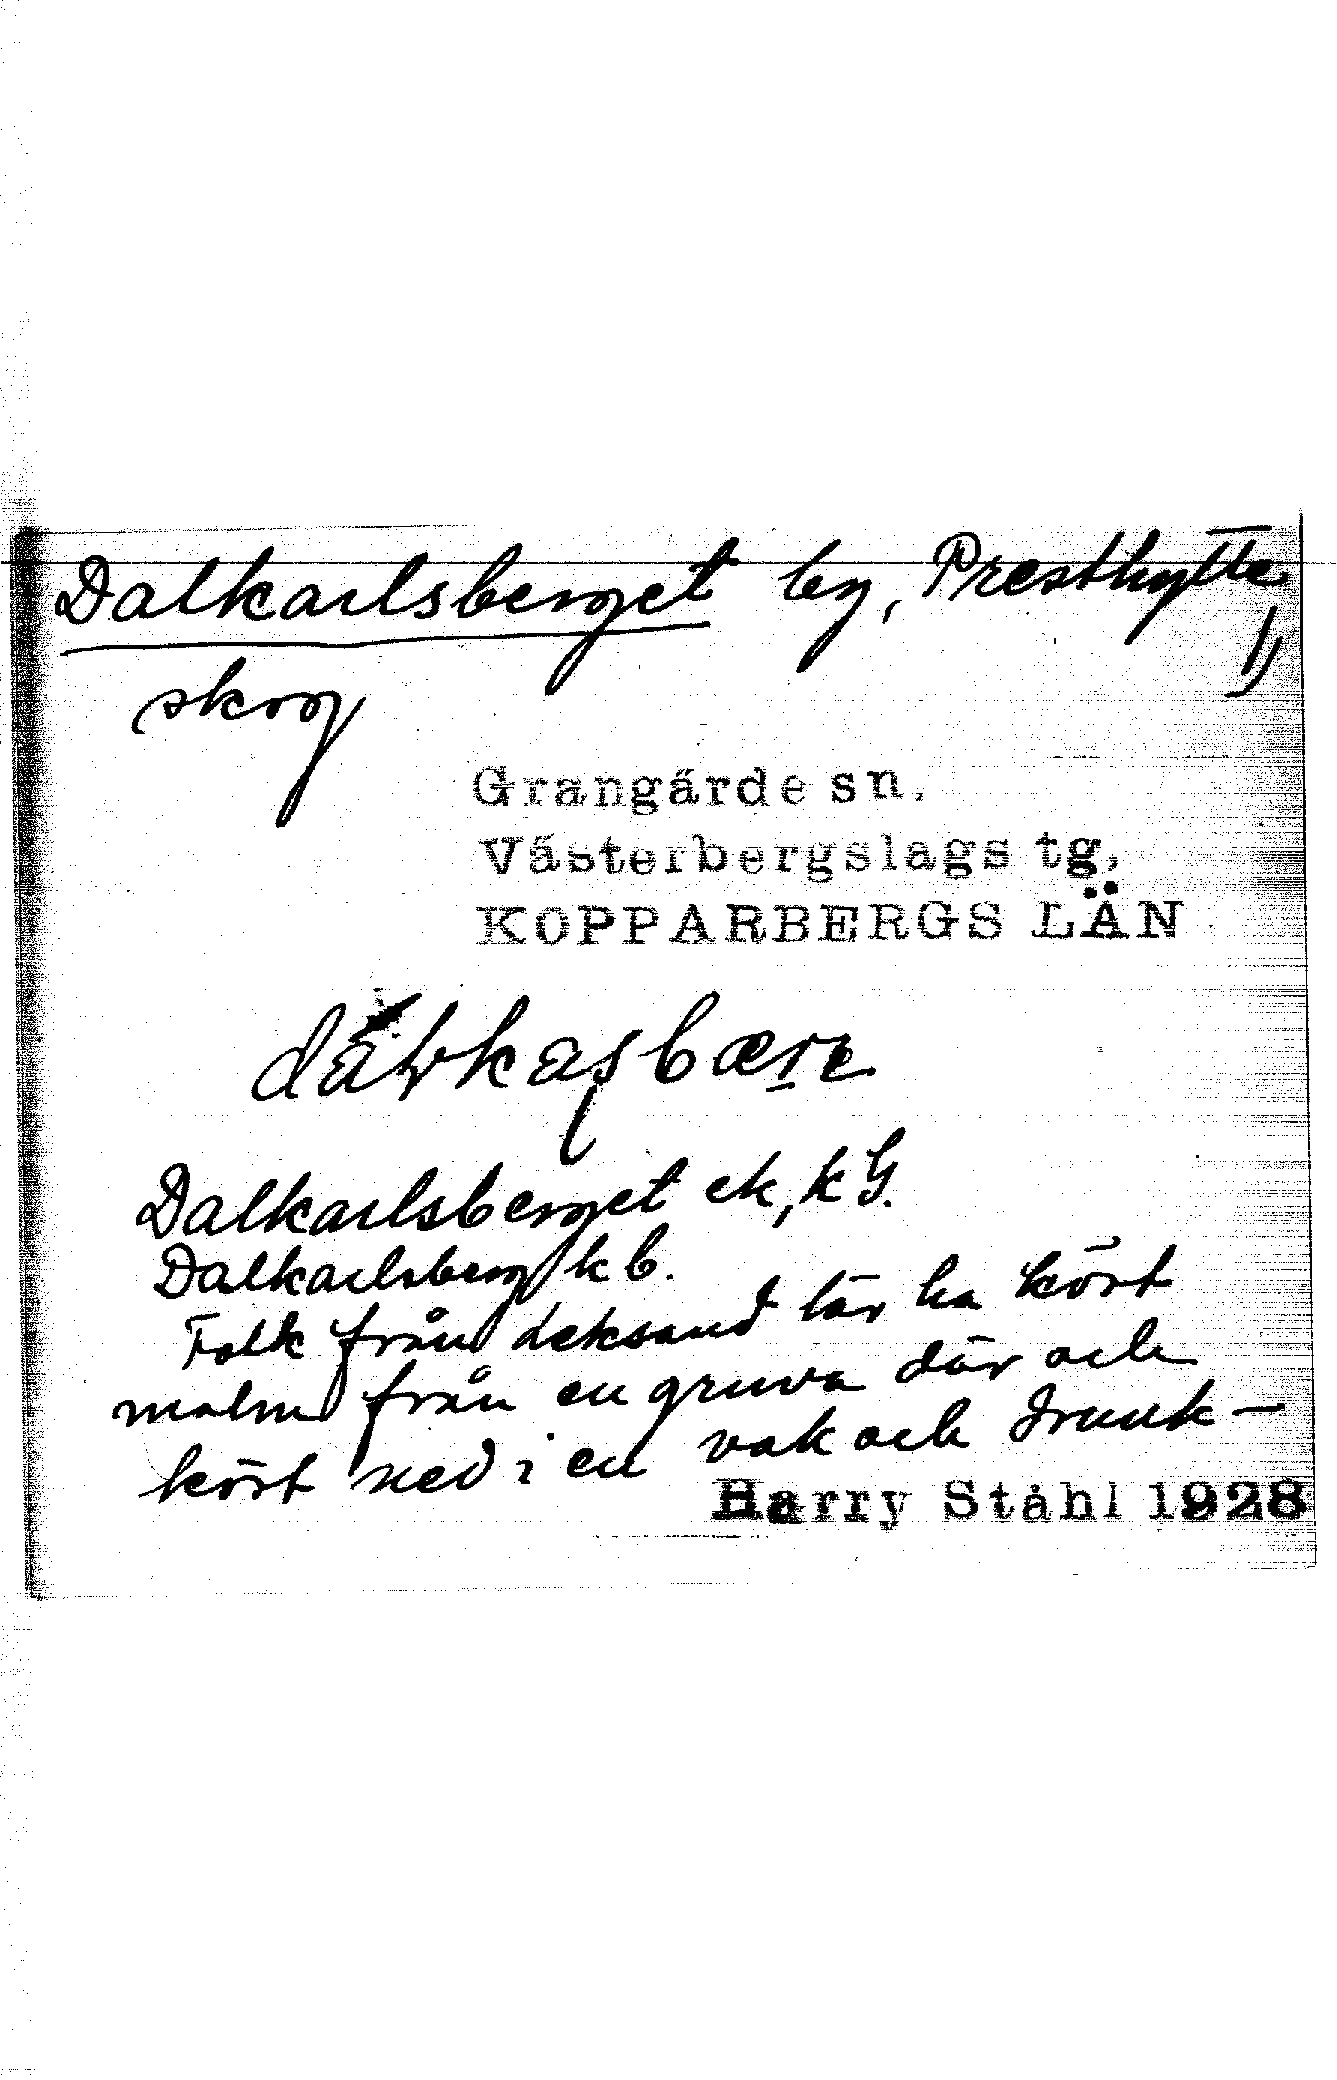 Dalkarlsberget by, Presthytte
1)
skog
Grangärde sn.
Västerbergslags tg,
KOPPARBERGS LÄN
Dalkarlsberget ek, k G.
Dalkarlsberg k b.
Folk från Leksand lär ha kört
malm från en gruva där och
kört ned i en vak och drunk-
Harry Ståhl 1928